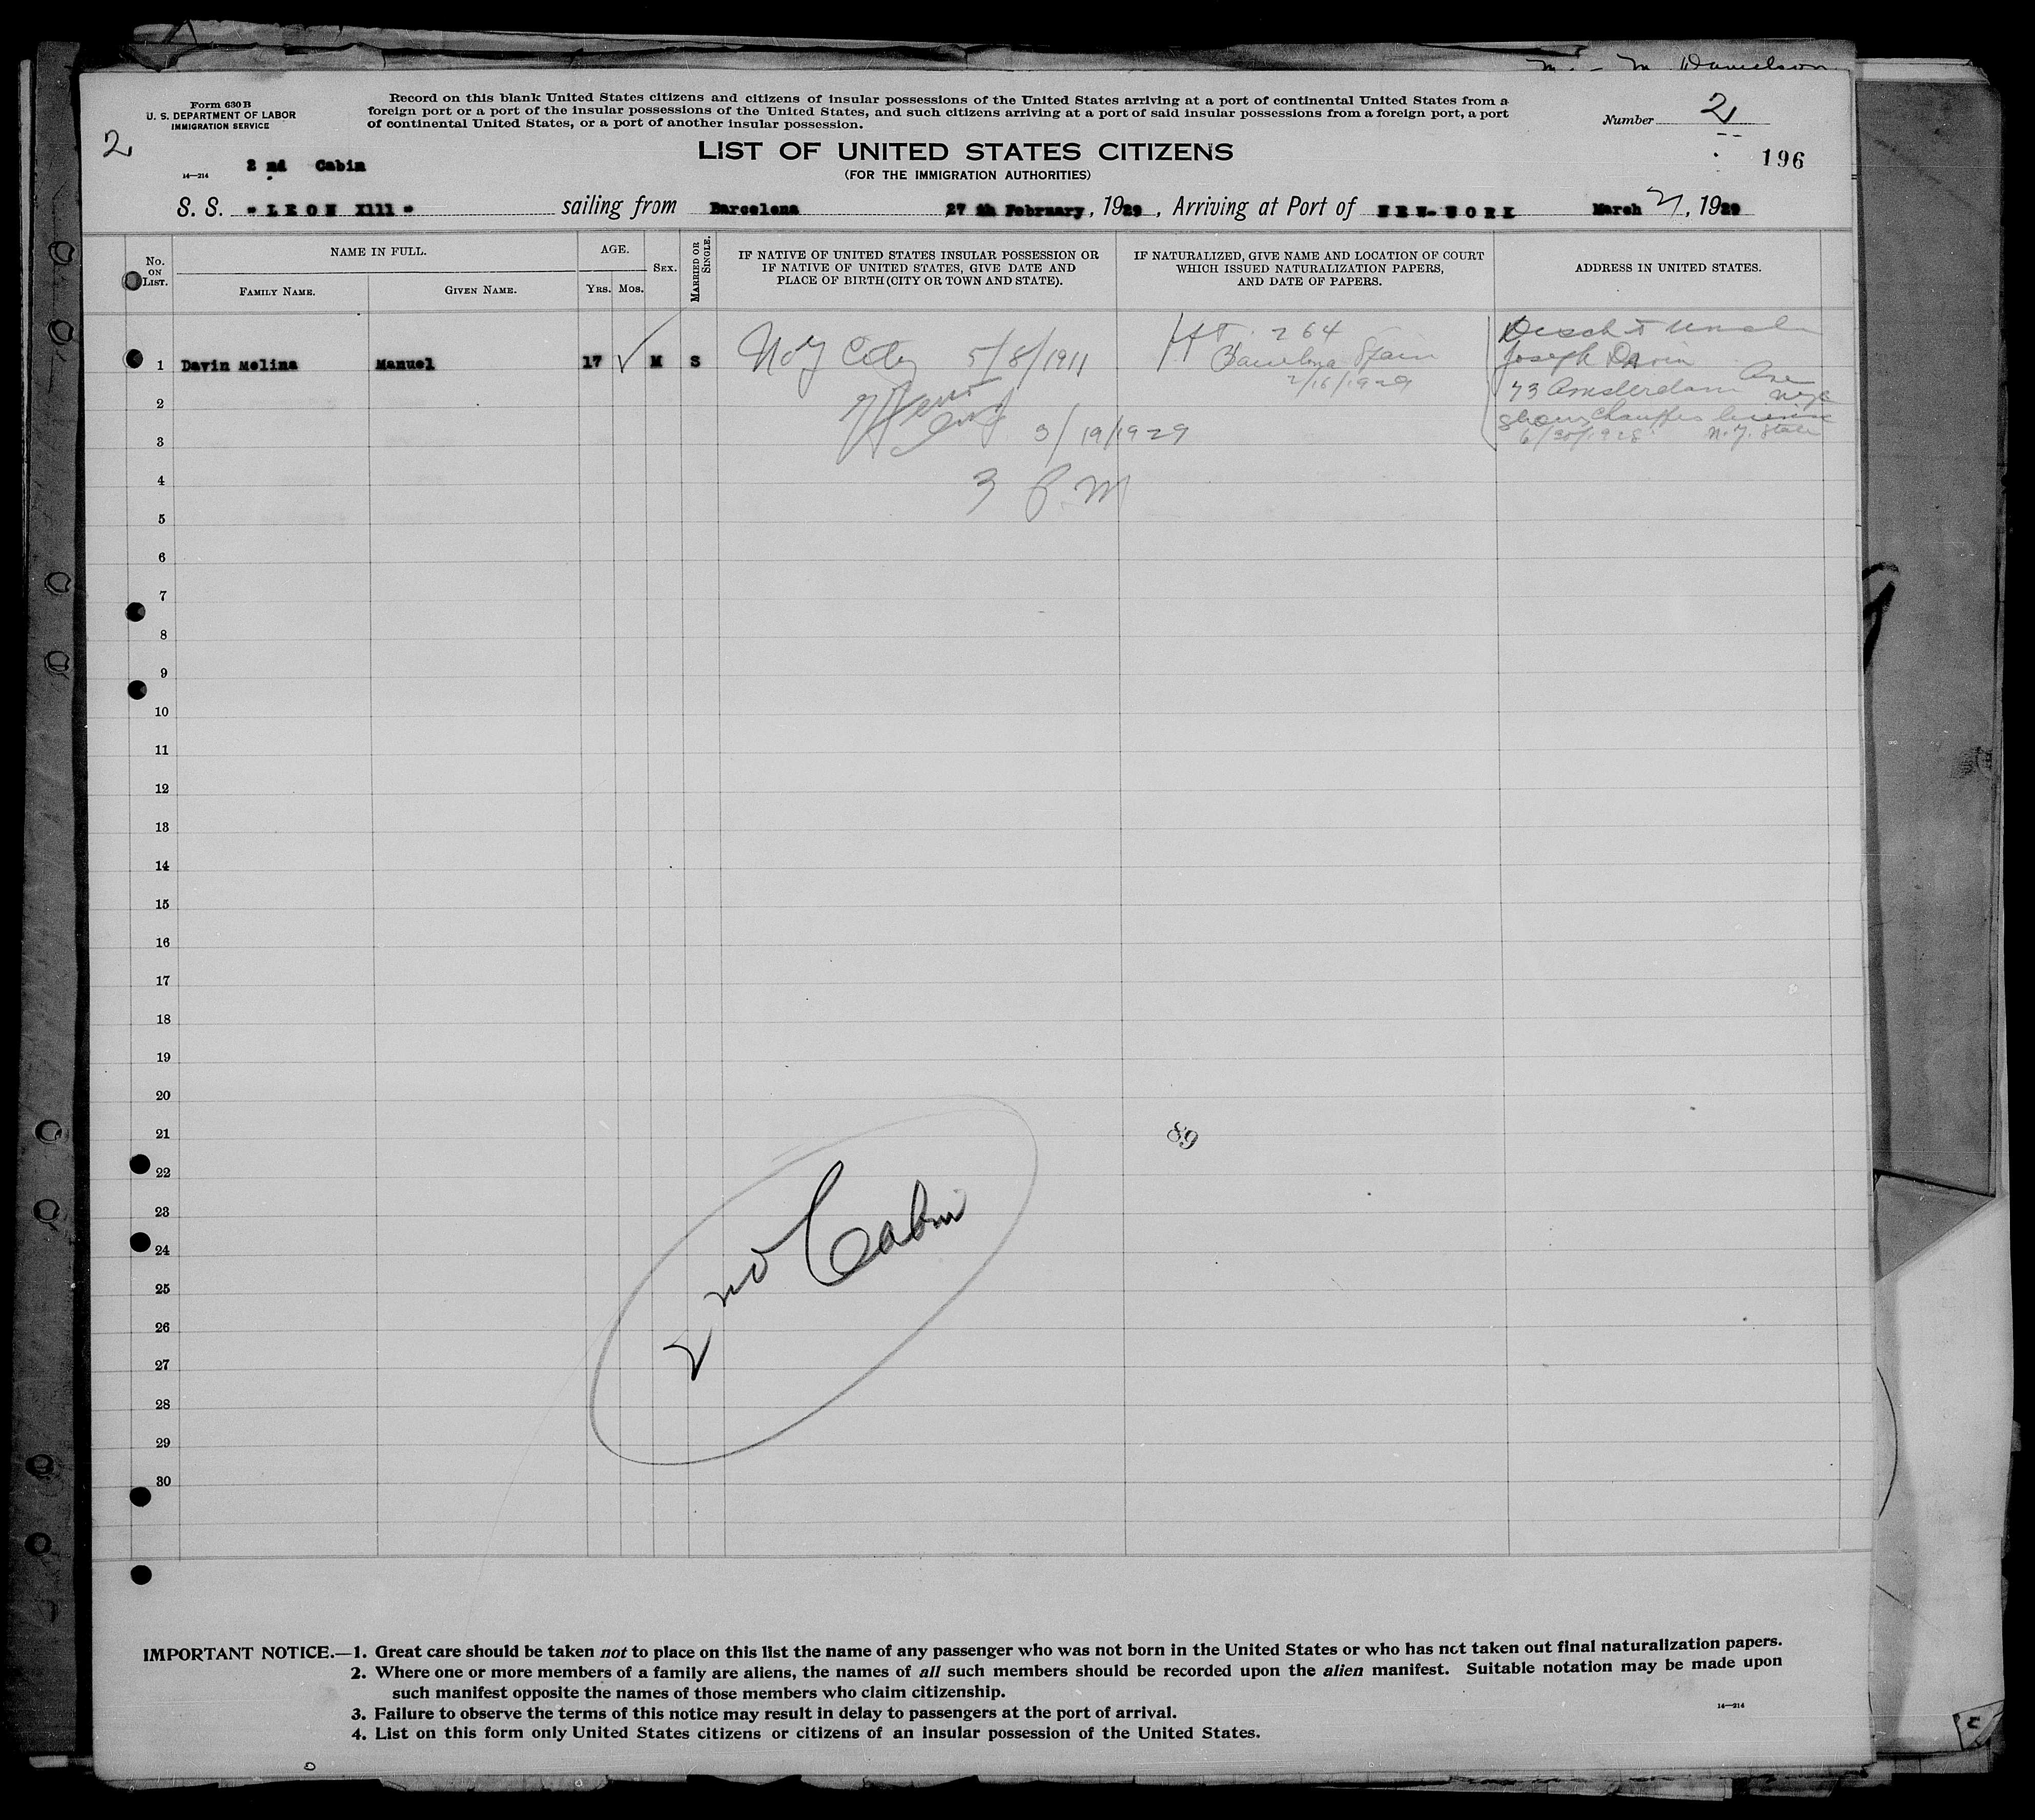 M. Danielson
Form 630 B
U. S. DEPARTMENT OF LABOR
IMMIGRATION SERVICE
Record on this blank United States citizens and citizens of insular possessions of the United States arriving at a port of continental United States from a
foreign port or a port of the insular possessions of the United States, and such citizens arriving at a port of said insular possessions from a foreign port, a port
of continental United States, or a port of another insular possession.
Number 2
2
LIST OF UNITED STATES CITIZENS
(FOR THE IMMIGRATION AUTHORITIES)
196
14—214
2 nd Cabin
S. S. " LEON X111 " sailing from Barcelona 27 th February, 1929, Arriving at Port of NEW-WORK March 21, 1929
No. ON LIST.
NAME IN FULL.
FAMILY NAME.
GIVEN NAME.
AGE.
YRS.
MOS.
SEX.
MARRIED OR SINGLE.
IF NATIVE OF UNITED STATES INSULAR POSSESSION OR
IF NATIVE OF UNITED STATES, GIVE DATE AND
PLACE OF BIRTH (CITY OR TOWN AND STATE).
IF NATURALIZED, GIVE NAME AND LOCATION OF COURT
WHICH ISSUED NATURALIZATION PAPERS,
AND DATE OF PAPERS.
ADDRESS IN UNITED STATES.
1 Davin Molina Manuel 17 ✓ M S N.Y City 5/8/1911
264
Barcelona Spain
2/16/1929
Disch to Uncle
Joseph Davin
73 Amsterdam Ave
NYC
shows Chauffeurs license
6/30/1928 N.Y. State
3/19/1929
3 P.M
2
3
4
5
6
7
8
9
10
11
12
13
14
15
16
17
18
19
20
21
22
23
24
25
26
27
28
29
30
89
2 nd Cabin
IMPORTANT NOTICE.—1. Great care should be taken not to place on this list the name of any passenger who was not born in the United States or who has not taken out final naturalization papers.
2. Where one or more members of a family are aliens, the names of all such members should be recorded upon the alien manifest. Suitable notation may be made upon
such manifest opposite the names of those members who claim citizenship.
3. Failure to observe the terms of this notice may result in delay to passengers at the port of arrival.
4. List on this form only United States citizens or citizens of an insular possession of the United States.
14—214